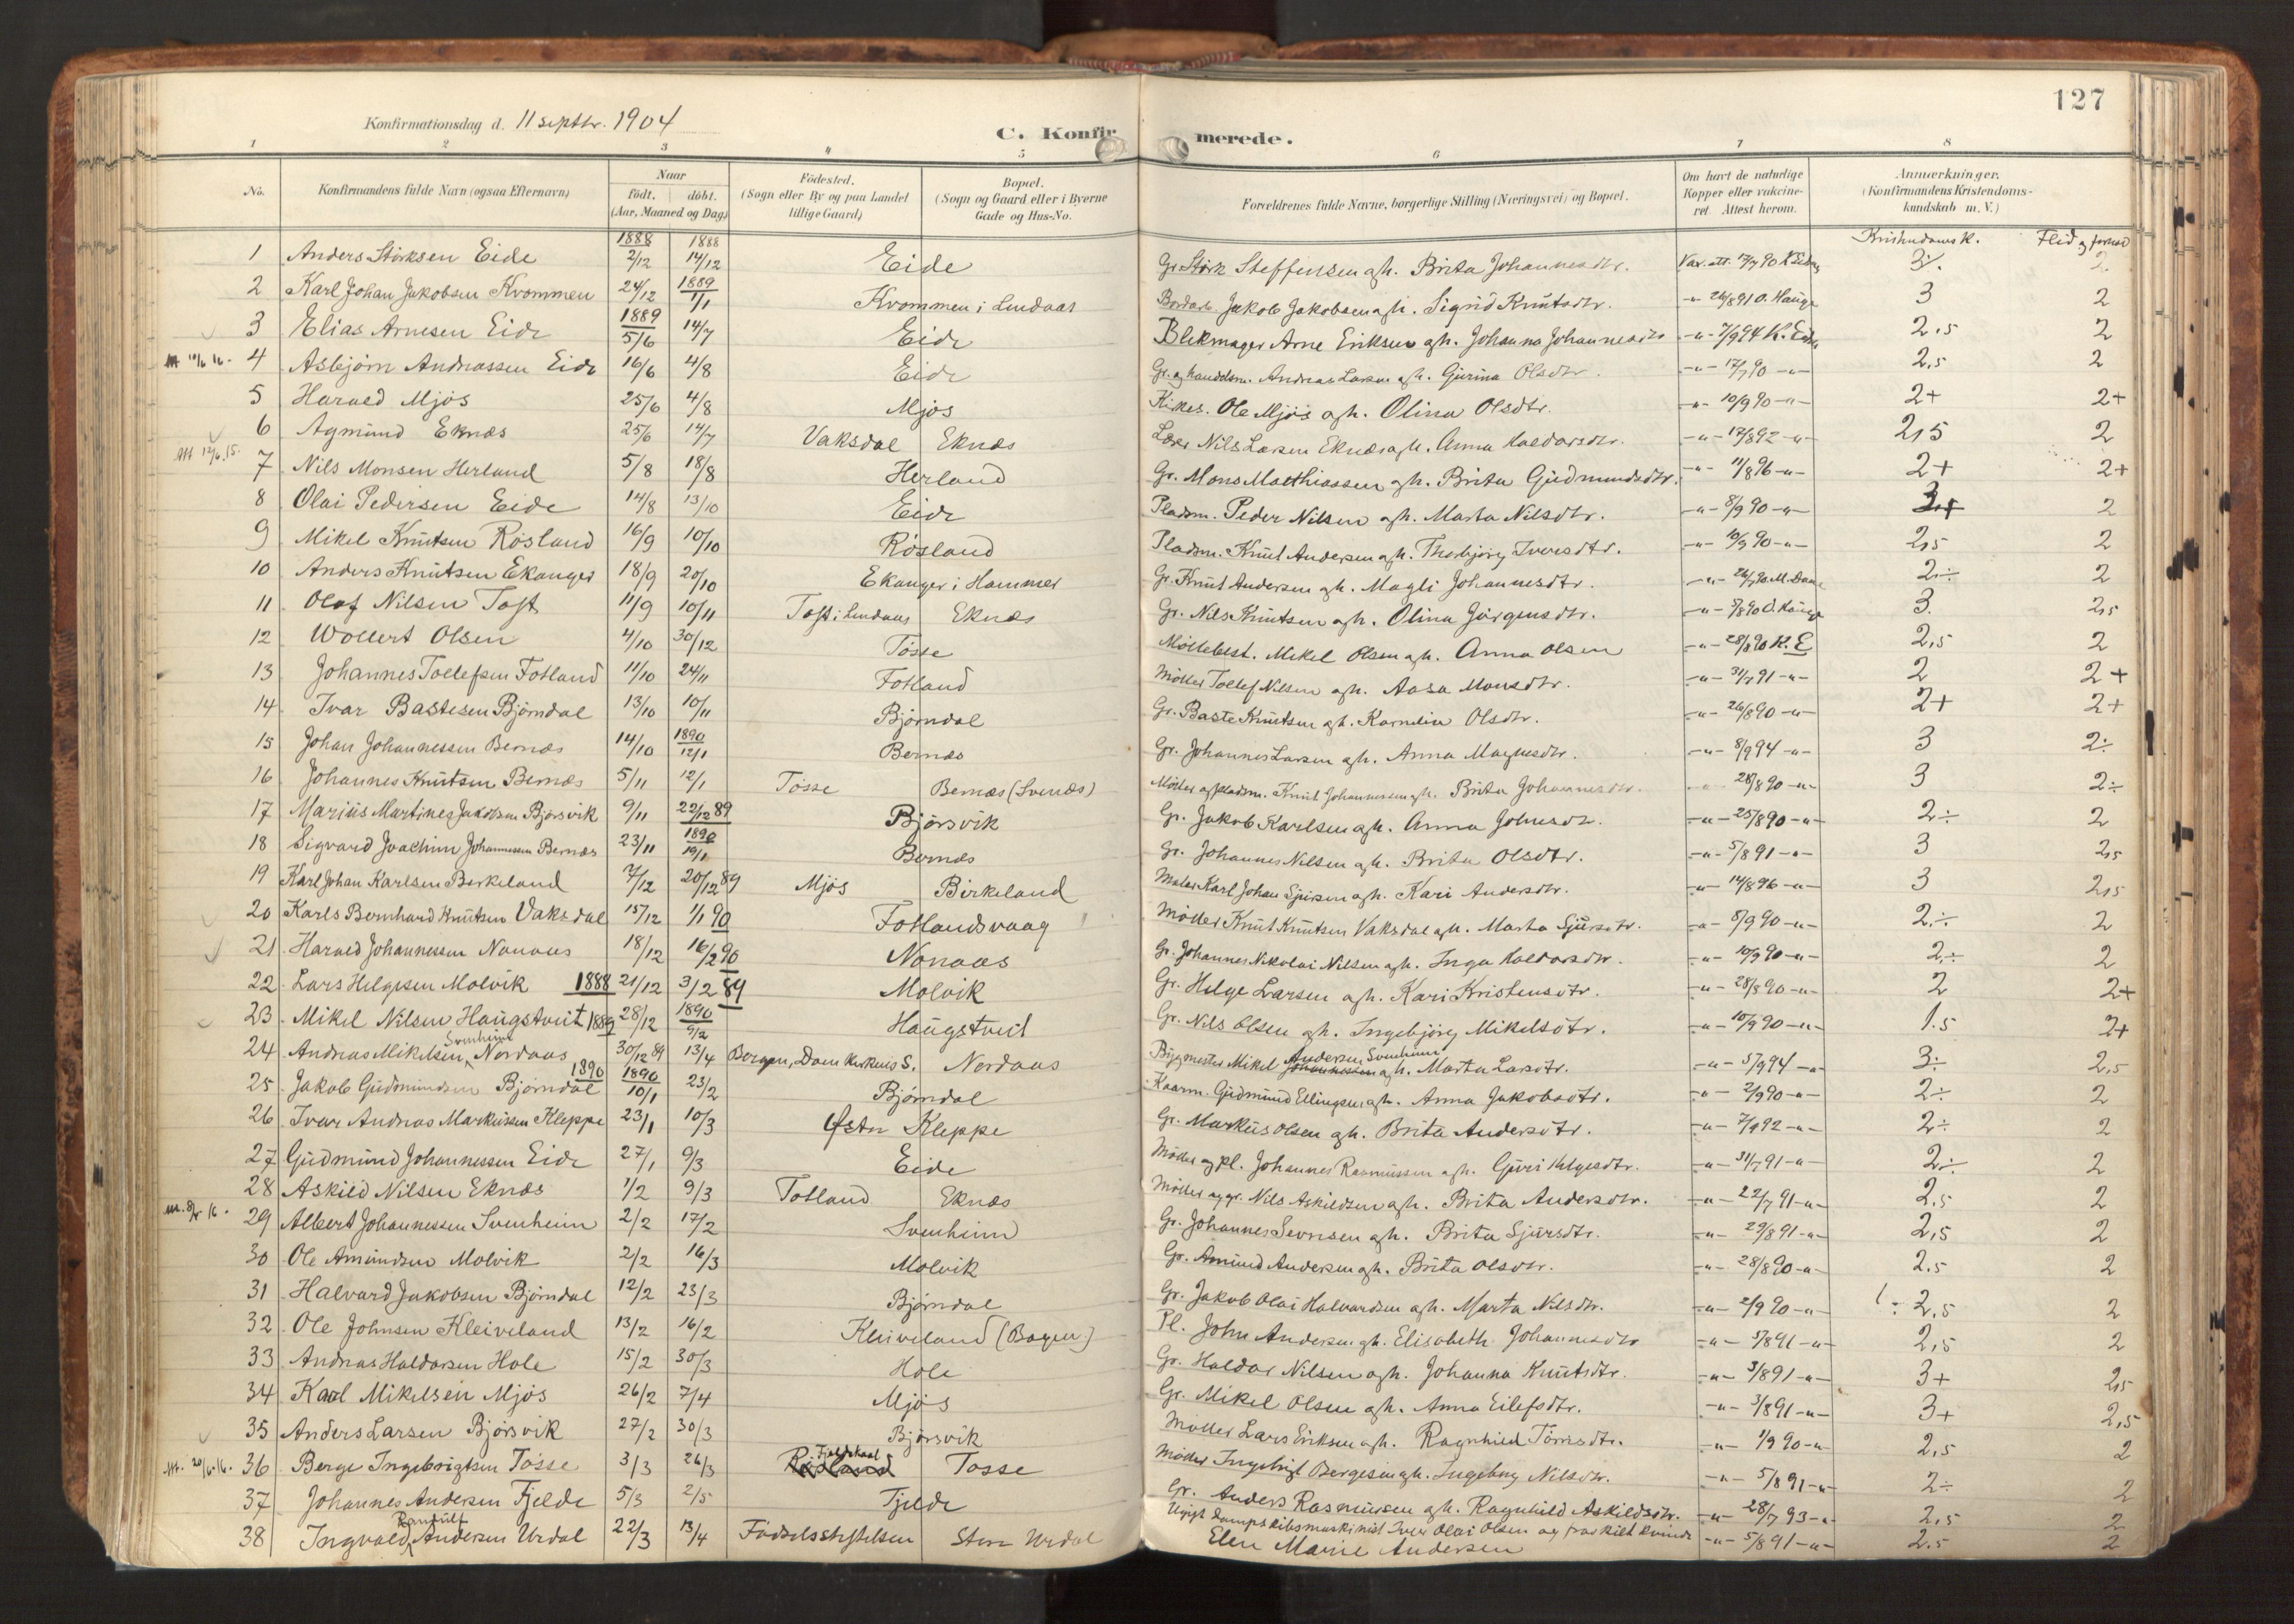 127
Konfirmationsdag d. 11 septbr. 1904
C. Konfirmerede.
1 2 3 4 5 6 7 8
No. Konfirmandens fulde Navn (ogsaa Efternavn) Naar födt. döbt. (Aar, Maaned og Dag) Födested. (Sogn eller By og paa Landet tillige Gaard) Bopæl. (Sogn og Gaard eller i Byerne Gade og Hus-No. Forældrenes fulde Navne, borgerlige Stilling (Næringsvei) og Bopæl. Om havt de naturlige Kopper eller vakcineret. Attest herom. Anmærkninger. (Konfirmandens Kristendomskundskab m. V.)
Kristendomsk. Flid og
1 Anders Störksen Eide 1888 2/12 1888 14/12 Eide Gr. Störk Steffensen og h. Brita Johannesdtr. Vax. att. 17/7 90 3
2 Karl Johan Jakobsen Kvommen 24/12 1889 1/1 Kvommen i Lindaas Jakob Jakobsen og h. Sigrid Knutsdtr. -"- 26/8 91 O. Hauge 3 2
3 Elias Arnesen Eide 1889 5/6 14/7 Eide Blikmager Arne Eriksen og h. Johanna Johannesdtr -"- 7/9 94 2,5 2
4 Asbjörn Andreassen Eide 16/6 4/8 Eide Gr. og handelsm. Andreas Larsen og h. Gjurina Olsdtr. -"- 17/7 90 -"- 2,5 2
5 Harald Mjös 25/6 4/8 Mjös Kirkes. Ole Mjös og h. Olina Olsdtr. -"- 10/9 90 -"- 2+ 2+
6 Agmund Eknæs 25/6 14/7 Vaksdal Eknæs Nils Larsen Eknæs og h. Anna Haldorsdtr. -"- 17/8 92 -"- 2,5 2
7 Nils Monsen Herland 5/8 18/8 Herland Gr. Mons Mathiassen og h. Brita Gudmundsdtr. -"- 11/8 96 -"- 2+ 2+
8 Olai Pedersen Eide 14/8 13/10 Eide Pladsm. Peder Nilsen og h. Marta Nilsdtr. -"- 8/9 90 -"- 2
9 Mikel Knutsen Rösland 16/9 10/10 Rösland Pladsm. Knut Andersen og h. Thorbjörg Iversdtr. -"- 10/9 90 -"- 2,5 2
10 Anders Knutsen Ekanger 18/9 20/10 Ekanger i Hammer Gr. Knut Andersen og h. Magli Johannesdtr. -"- 26/7 90 2÷ 2
11 Olaf Nilsen Toft 11/9 10/11 Toft i Lindaas Eknæs Gr. Nils Knutsen og h. Olina Jörgensdtr. -"- 5/8 90 O. Hauge 3 2,5
12 Wollert Olsen 4/10 30/12 Tösse Möllebest. Mikel Olsen og h. Anna Olsen -"- 28/8 90 K. E 2,5 2
13 Johannes Tollefsen Fotland 11/10 24/11 Fotland Möller Tollef Nilsen og h. Aasa Monsdtr. -"- 31/7 91 -"- 2 2+
14 Ivar Bastesen Björndal 13/10 10/11 Björndal Gr. Baste Knutsen og h. Karnelia Olsdtr. -"- 26/8 90 -"- 2+ 2+
15 Johan Johannessen Bernæs 14/10 1890 12/1 Bernæs Gr. Johannes Larsen og h. Anna Magnesdtr. -"- 8/9 94 -"- 3 2÷
16 Johannes Knutsen Bernæs 5/11 12/1 Tösse Bernæs (Svenæs) Möller og pladsm. Knut Johannessen og h. Brita Johannesdtr. 28/8 90 -"- 3 2÷
17 Marius Martines Jakobsen Björsvik 9/11 22/12 89 Björsvik Gr. Jakob Karlsen og h. Anna Johnsdtr. -"- 25/8 90 -"- 2÷ 2
18 Sigvard Joachim Johannessen Bernæs 23/11 1890 19/1 Bernæs Gr. Johannes Nilsen og h. Brita Olsdtr. -"- 5/8 91 -"- 3 2,5
19 Karl Johan Karlsen Birkeland 7/12 20/12 89 Mjös Birkeland Maler Karl Johan Sjursen og h. Kari Andersdtr. -"- 14/8 96 -"- 3 2,5
20 Karls Bernhard Knutsen Vaksdal 15/12 1/1 90 Fotlandsvaag Möller Knut Knutsen Vaksdal og h. Marta Sjursdtr. -"- 8/9 90 -"- 2÷ 2
21 Harald Johannessen Nonaas 18/12 16/2 90 Nonaas Gr. Johannes Nikolai Nilsen og h. Inga Haldorsdtr. -"- 10/9 90 -"- 2÷ 2
22 Lars Helgesen Molvik 1888 21/12 3/2 89 Molvik Gr. Helge Larsen og h. Kari Kristensdtr. -"- 28/8 90 -"- 2 2+
23 Mikel Nilsen Haugstveit 1889 28/12 1890 9/2 Haugstveit Gr. Nils Olsen og h. Ingebjörg Mikelsdtr. -"- 10/9 90 -"- 1.5 2+
24 Andreas Mikelsen Svenheim Nordaas 30/12 89 13/4 Bergen, Domkirkens S. Nordaas Bygmester Mikel Johannessen Andersen Svenheim og h. Marta Larsdtr. -"- 5/9 94 -"- 3÷ 2,5
25 Jakob Gudmundsen Björndal 1890 1890 10/1 23/2 Björndal Kaarm. Gudmund Ellingsen og h. Anna Jakobsdtr. -"- 2/9 90 -"- 2÷ 2
26 Ivar Andreas Markussen Kleppe 23/1 10/3 Östr Kleppe Gr. Markus Olsen og h. Brita Andersdtr. -"- 7/9 92 -"- 2÷ 2
27 Gudmund Johannessen Eide 27/1 9/3 Eide Möller og pl. Johannes Rasmussen og h. Guri Helgesdtr. -"- 31/7 91 -"- 2÷ 2
28 Askild Nilsen Eknæs 1/2 9/3 Totland Eknæs Möller og gr. Nils Askildsen og h. Brita Andersdtr. -"- 22/7 91 -"- 2,5 2
29 Albert Johannessen Svenheim 2/2 17/2 Svenheim Gr. Johannes Sevrinsen og h. Brita Sjursdtr. -"- 29/8 91 -"- 2,5 2
30 Ole Amundsen Molvik 2/2 16/3 Molvik Gr. Amund Andersen og h. Brita Olsdtr. -"- 28/8 90 -"- 2.5 2
31 Halvard Jakobsen Björndal 12/2 23/3 Björndal Gr. Jakob Olai Halvardsen og h. Marta Nilsdtr. -"- 2/9 90 -"- 2,5 2
32 Ole Johnsen Kleiveland 13/2 16/2 Kleiveland (Bogen) Pl. John Andersen og h. Elisabeth Johannesdtr -"- 5/8 91 -"- 2,5 2
33 Andreas Haldorsen Hole 15/2 30/3 Hole Gr. Haldor Nilsen og h. Johanna Knutsdtr. -"- 3/8 91 -"- 3+ 2
34 Karl Mikelsen Mjös 26/2 7/4 Mjös Gr. Mikel Olsen og h. Anna Eilefsdtr. -"- 3/8 91 -"- 3+ 2,5
35 Anders Larsen Björsvik 27/2 30/3 Björsvik Möller Lars Eriksen og h. Ragnhild Törresdtr. -"- 1/9 90 -"- 2,5 2
36 Berge Ingebrigtsen Tösse 3/3 26/3 Fjeldskaal Tosse Möller Ingebrigt Bergesen og h. Ingeborg Nilsdtr. -"- 5/8 91 -"- 2÷ 2
37 Johannes Andersen Fjelde 5/3 2/5 Fjelde Gr. Anders Rasmussen og h. Ragnhild Askildsdtr. -"- 28/7 93 -"- 2,5 2
38 Ingvald Randulf Andersen Urdal 22/3 13/4 Födselsstiftelsen Store Urdal Ugift dampskibsmaskinist Iver Olai Olsen og fraskilt kvinde Elen Marie Andersen -"- 5/8 91 -"- 2.5 2